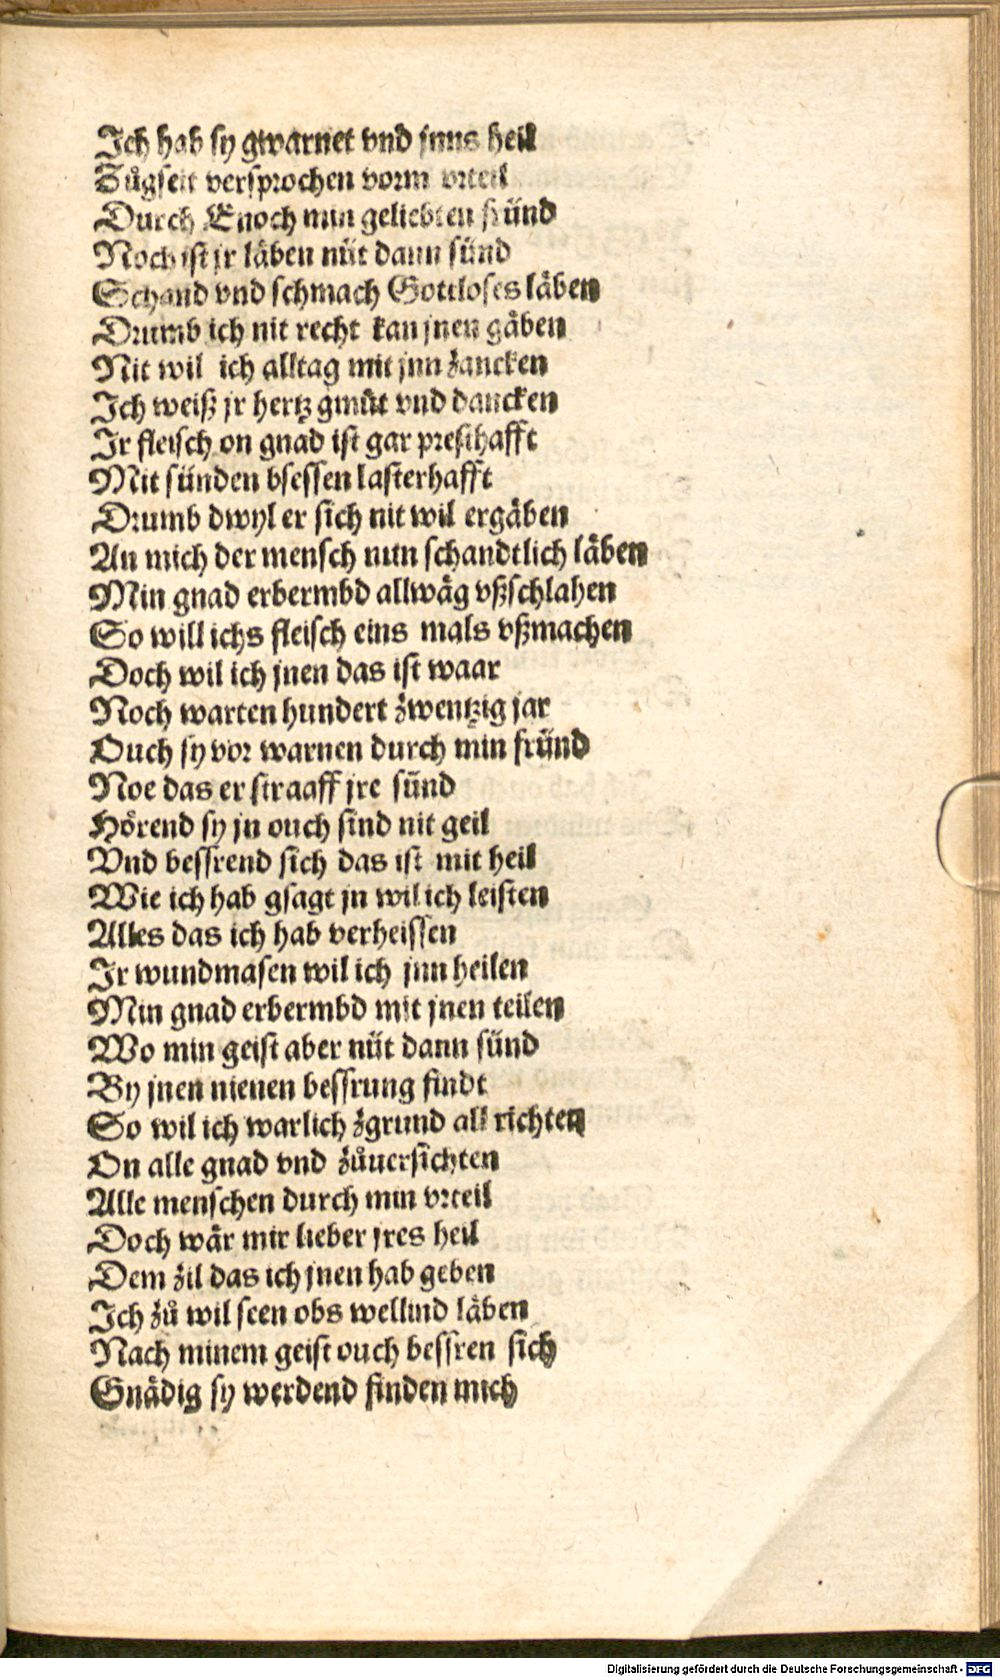 Ich hab sy gwarnet vnd jnns heil
Zůgseit versprochen vorm vrteil
Durch Enoch min geliebten fründ
Noch ist jr läben nüt dann sünd
Schand vnd schmach Gottloses läben
Drumb ich nit recht kan jnen gäben
Nit wil ich alltag mit jnn zancken
Ich weiß jr hertz gmüt vnd dancken
Ir fleisch on gnad ist gar presthafft
Mit sünden bsessen lasterhafft
Drumb dwyl er sich nit wil ergäben
An mich der mensch nun schandtlich läben
Min gnad erbermbd allwäg vßschlahen
So will ichs fleisch eins mals vßmachen
Doch wil ich jnen das ist waar
Noch warten hundert zwentzig jar
Ouch sy vor warnen durch min fründ
Noe das er straaff jre sünd
Hörend sy jn ouch sind nit geil
Vnd bessrend sich das ist mit heil
Wie ich hab gsagt jn wil ich leisten
Alles das ich hab verheissen
Ir wundmasen wil ich jnn heilen
Min gnad erbermbd mit jnen teilen
Wo min geist aber nüt dann sünd
By jnen nienen bessrung findt
So wil ich warlich zgrund all richten
On alle gnad vnd zůuersichten
Alle menschen durch min vrteil
Doch wär mir lieber jres heil
Dem zil das ich jnen hab geben
Ich zů wil seen obs wellind läben
Nach minem geist ouch bessren sich
Gnädig sy werdend finden mich
Digitalisierung gefördert durch die Deutsche Forschungsgemeinschaft - DFG